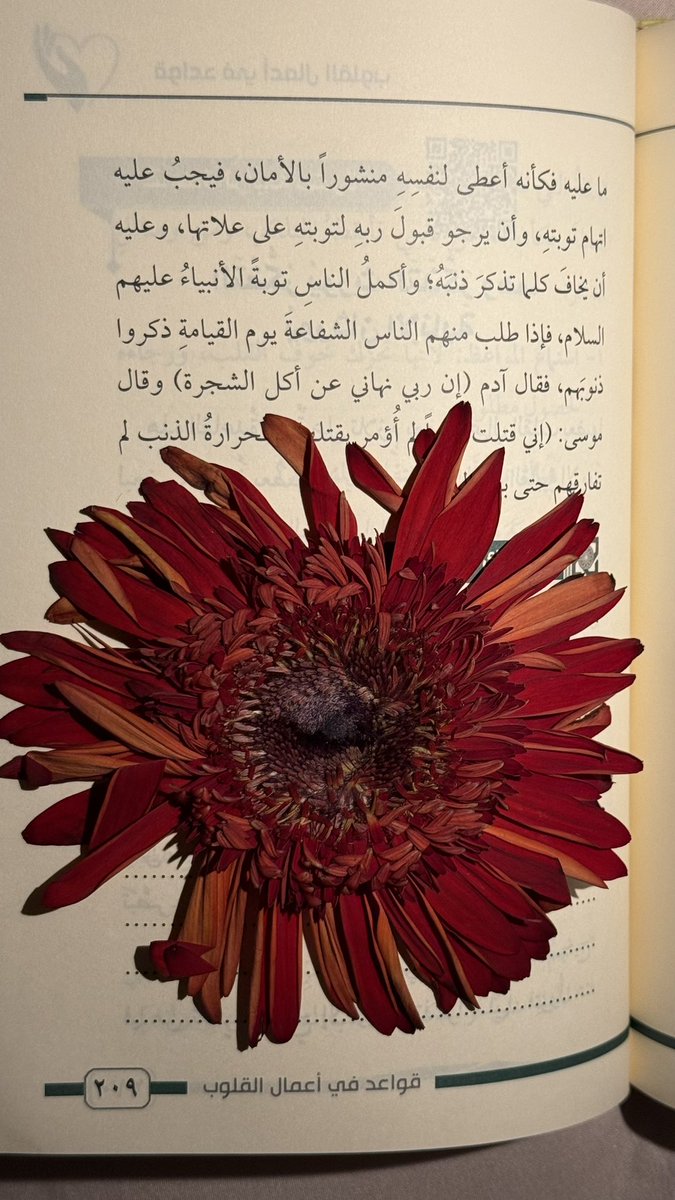 ما عليه فكأنه أعطى لنفسِهِ منشوراً بالأمان، فيجبُ عليه
اتهام توبتهِ، وأن يرجو قبولَ ربهِ لتوبتهِ على علاتها، وعليه
أن يخافَ كلما تذكرَ ذنبَهُ؛ وأكملُ الناسِ توبةً الأنبياءُ عليهم
السلام، فإذا طلب منهم الناس الشفاعةَ يوم القيامةِ ذكروا
ذنوبَهم، فقال آدم (إن ربي نهاني عن أكل الشجرة) وقال
موسى: (إني قتلت لم أُؤمر بقتله الذنب لم
تفارقهم حتى
قواعد في أعمال القلوب
٢٠٩